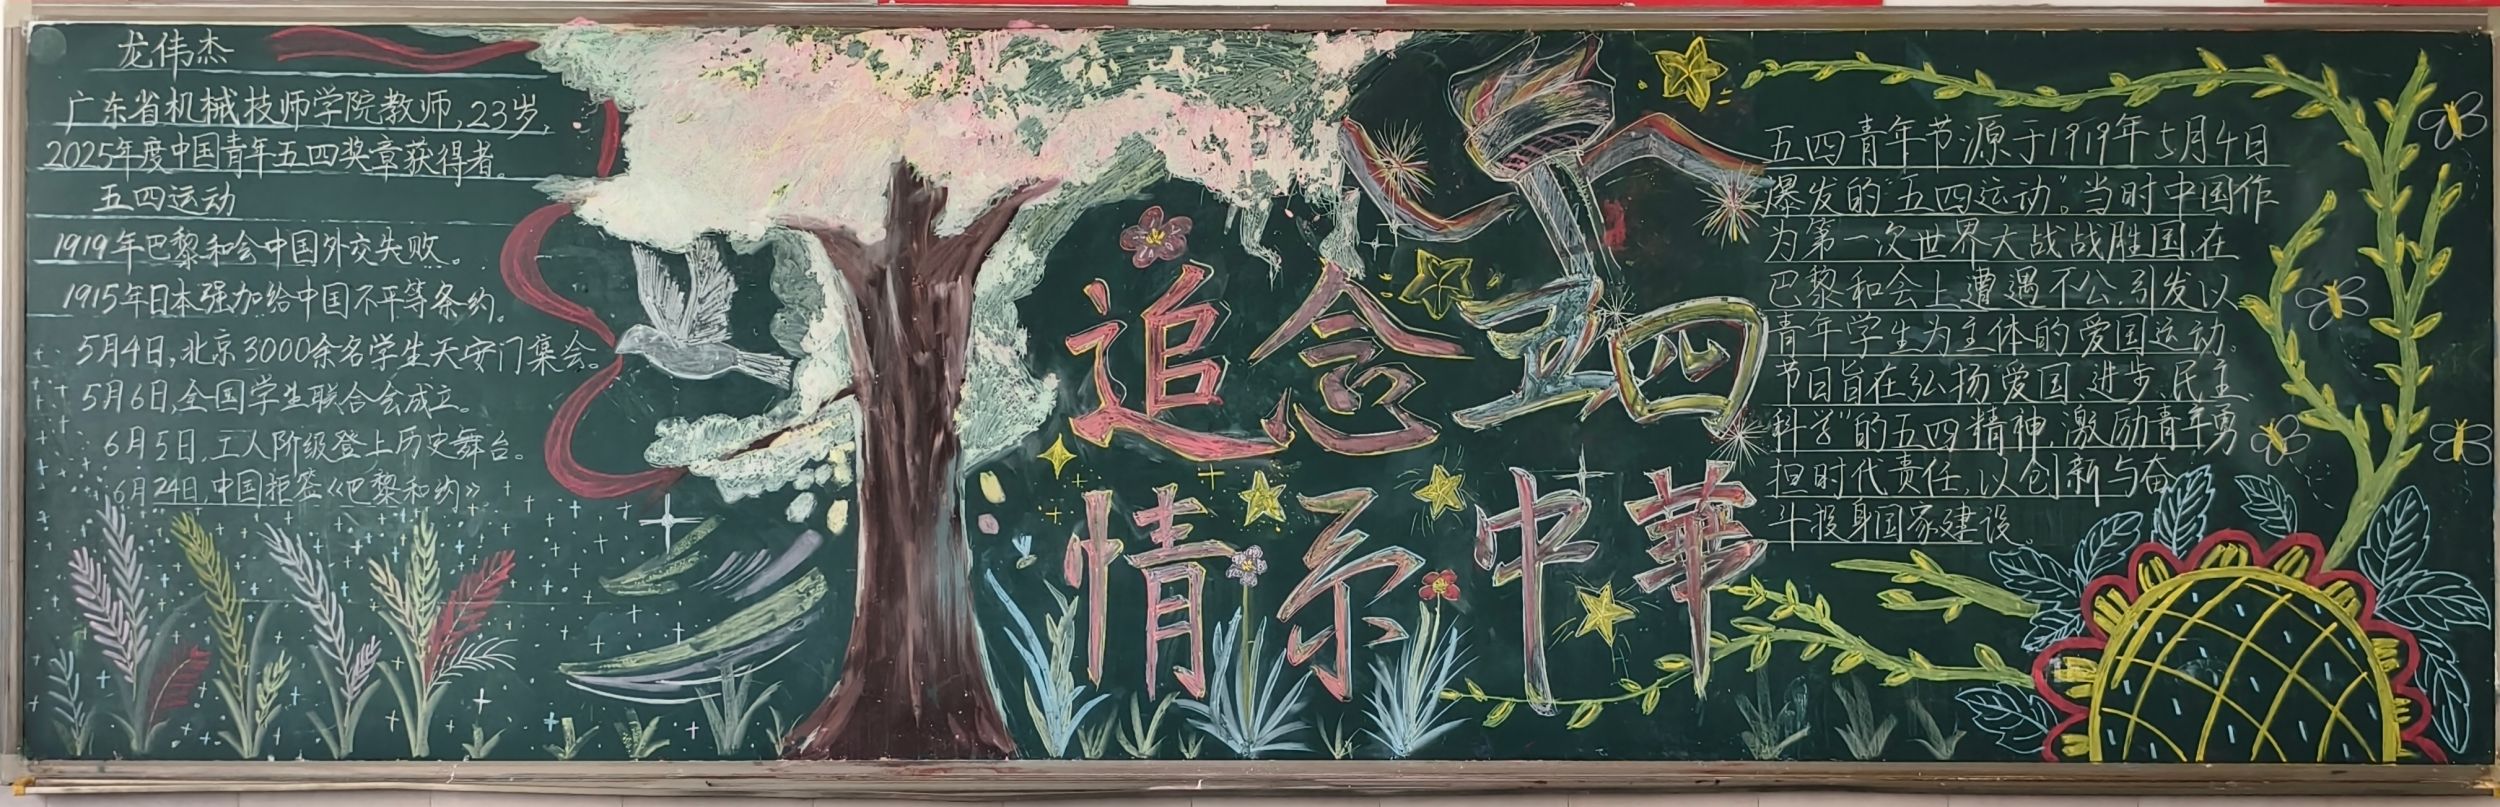 龙伟杰
广东省机械技师学院教师,23岁,
2025年度中国青年五四奖章获得者。
五四运动
1919年巴黎和会中国外交失败。
1915年日本强加给中国不平等条约。
5月4日,北京3000余名学生天安门集会。
5月6日,全国学生联合会成立。
6月5日,工人阶级登上历史舞台。
6月24日,中国拒签《巴黎和约》
追念五四
情系中華
五四青年节源于1919年5月4日
爆发的“五四运动”。当时中国作
为第一次世界大战战胜国,在
巴黎和会上遭遇不公,引发以
青年学生为主体的爱国运动。
节日旨在弘扬“爱国、进步、民主
科学”的五四精神,激励青年勇
担时代责任,以创新与奋
斗投身国家建设。